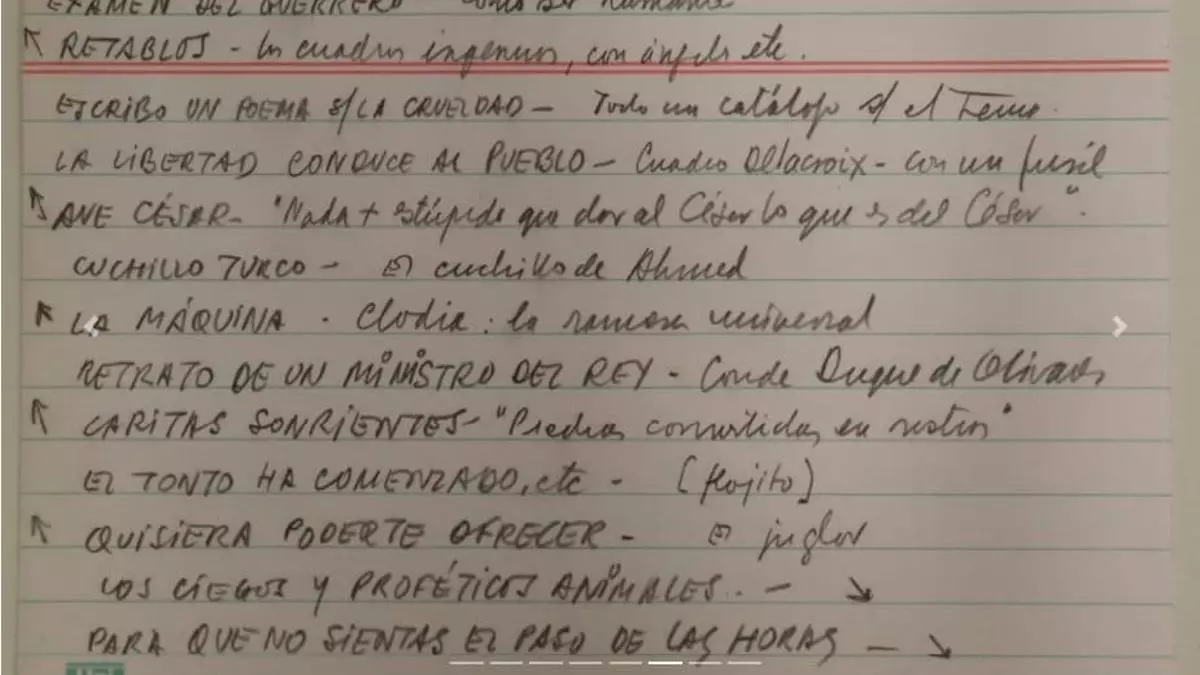 EXAMEN DEL GUERRERO - como ser humano
RETABLOS - los cuadros ingenuos, con ángeles etc.
ESCRIBO UN POEMA S/LA CRUELDAD - Todo un catálogo s/ el Tema.
LA LIBERTAD CONDUCE AL PUEBLO - Cuadro Delacroix - con un fusil
AVE CÉSAR - "Nada + estúpido que dar al César lo que es del César".
CUCHILLO TURCO - El cuchillo de Ahmed
LA MÁQUINA. Clodia: la ramera universal
RETRATO DE UN MINISTRO DEL REY - Conde Duque de Olivares
CARITAS SONRIENTES - "Piedras convertidas en rostros"
EL TONTO HA COMENZADO, etc - [flojito]
QUISIERA PODERTE OFRECER - El juglar
LOS CIEGOS Y PROFÉTICOS ANIMALES. - ↘
PARA QUE NO SIENTAS EL PASO DE LAS HORAS - ↘